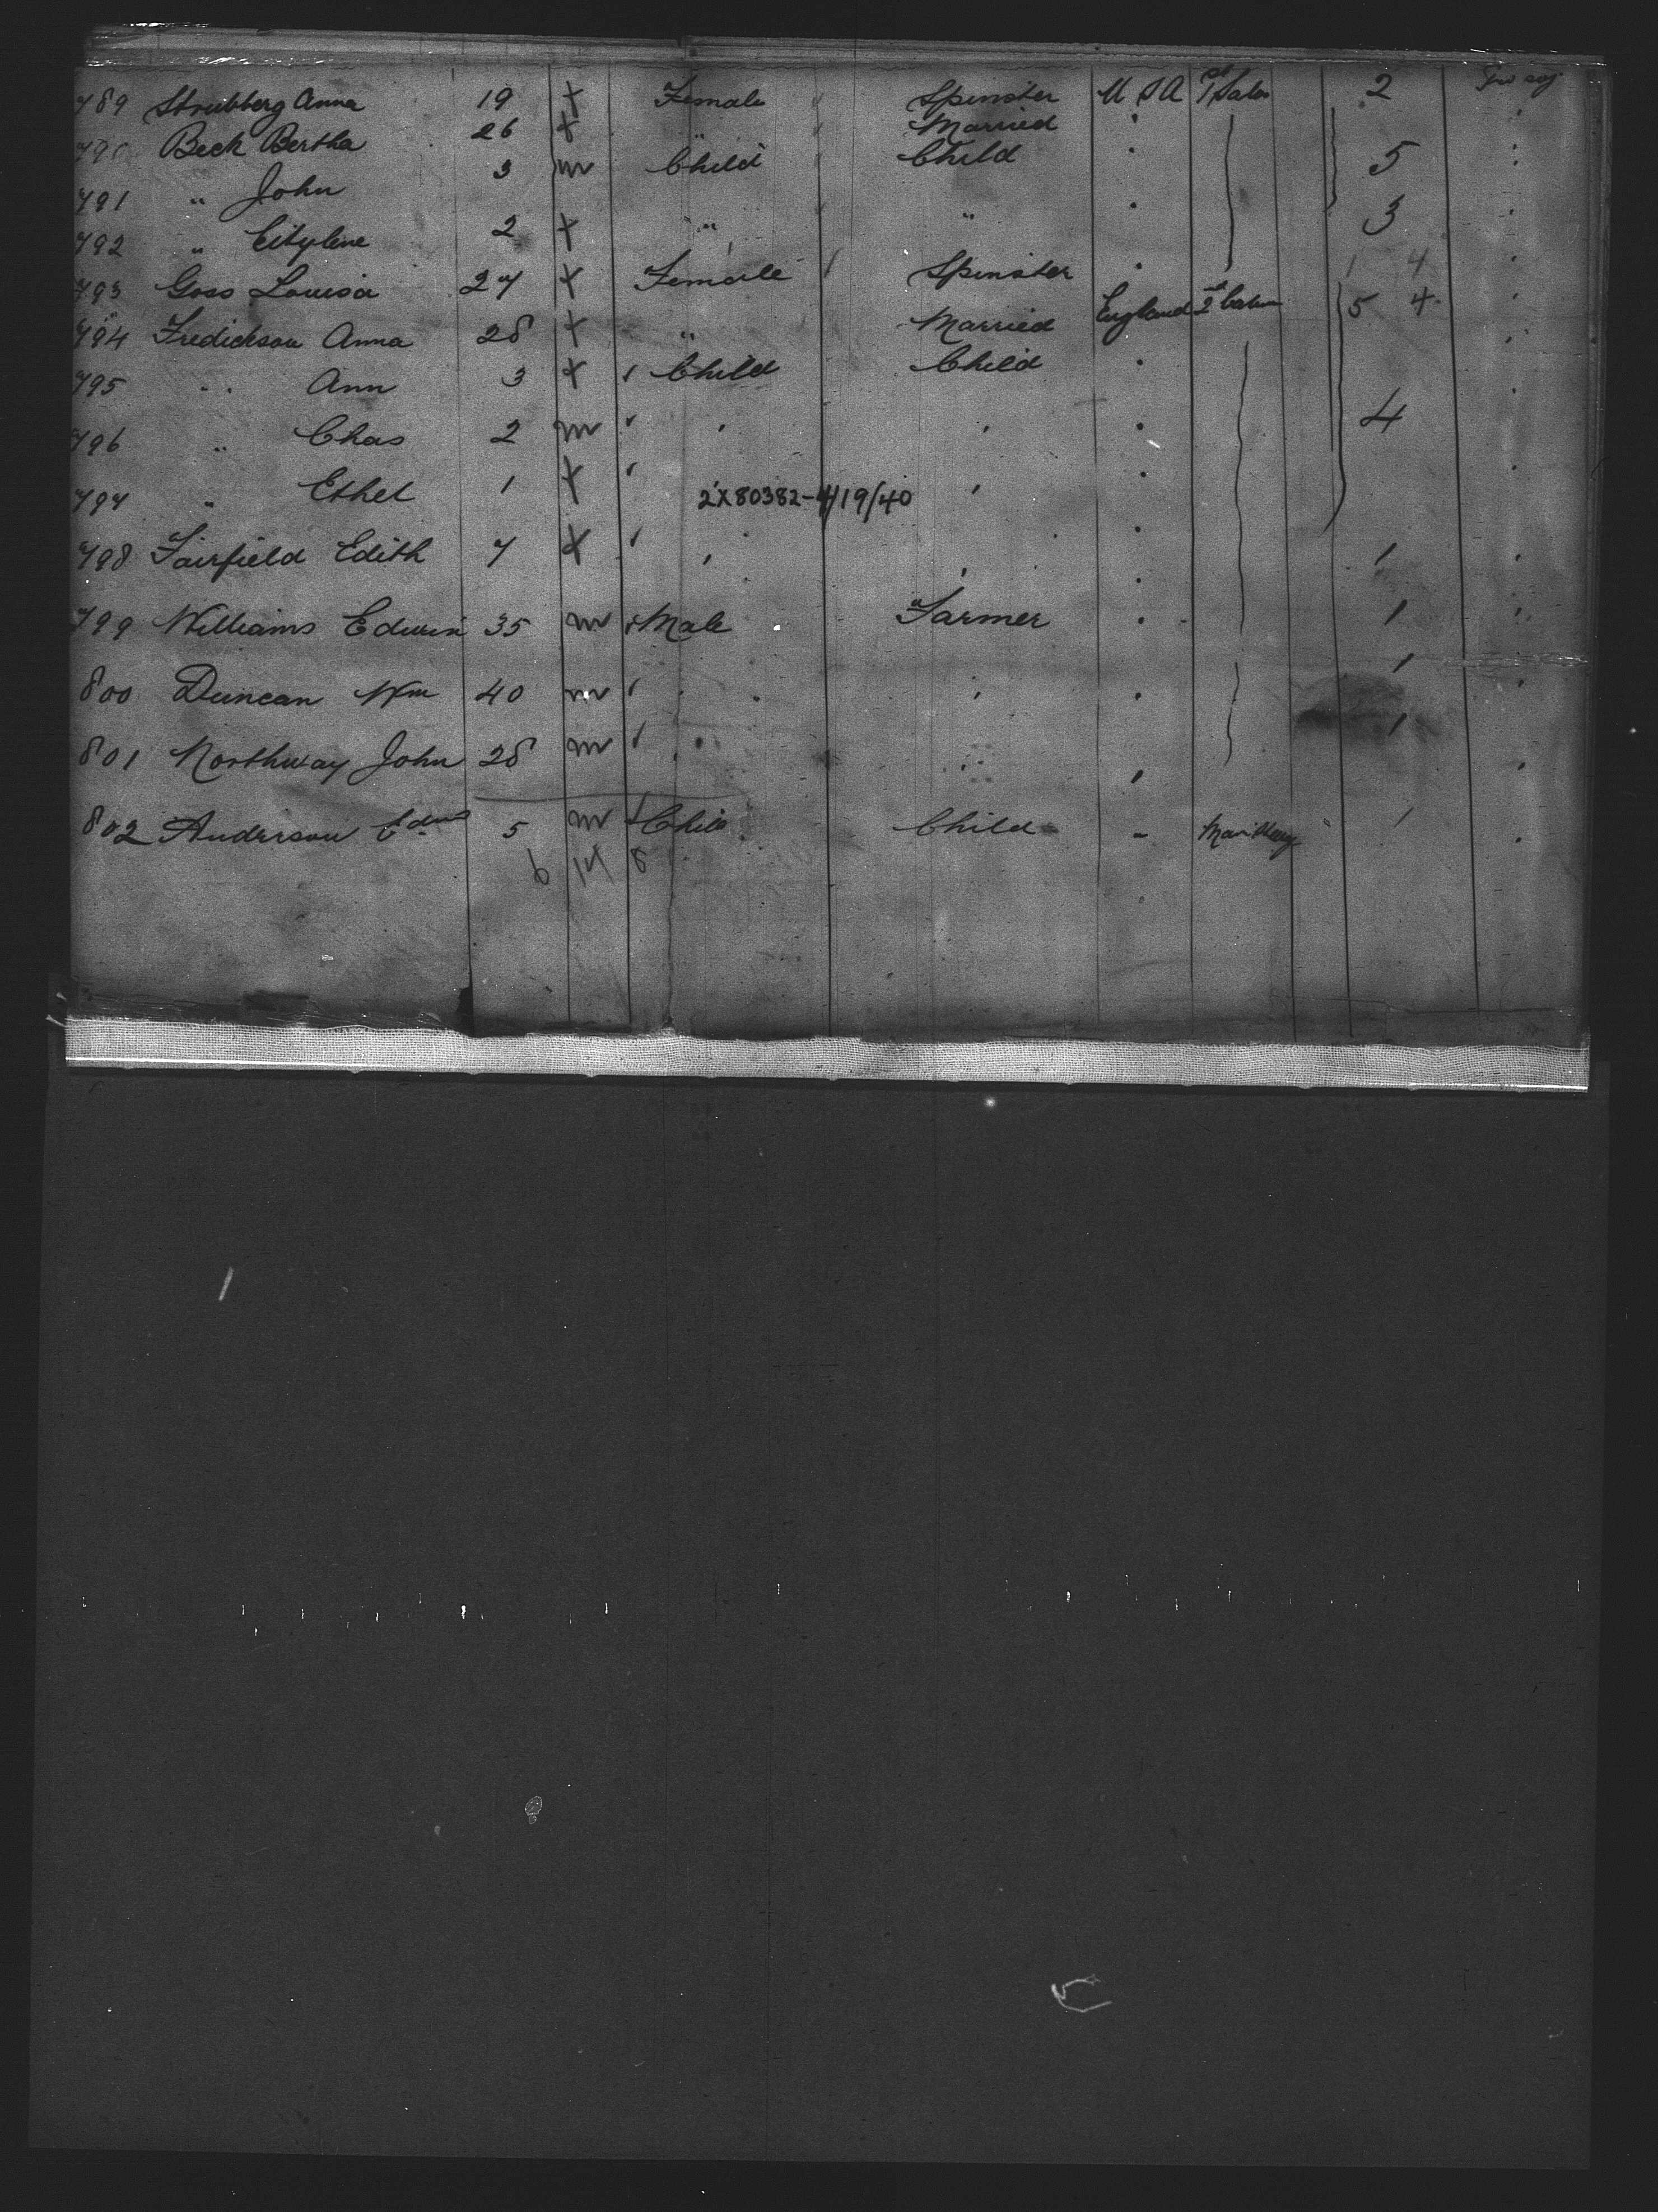 789 Strubberg Anna 19 + Female Spinster U S A 1st Salon 2
790 Beck Bertha 26 + " Married "
791 " John 3 m Child Child " 5
792 " 2 + " " " 3
793 Goss Louisa 27 + Female Spinster " 1 4
794 Fredickson Anna 28 + " Married England 2nd Cabin 5 4
795 " Ann 3 + Child Child "
796 " Chas 2 m " " " 4
797 " Ethel 1 + " " "
2X80382-4/19/40
798 Fairfield Edith 7 + " " " 1
799 Williams Edwin 35 m Male Farmer " 1
800 Duncan Wm 40 m " " " 1
801 Northway John 28 m " " " 1
802 Anderson Edwd 5 m Child Child " 1
6 14 8